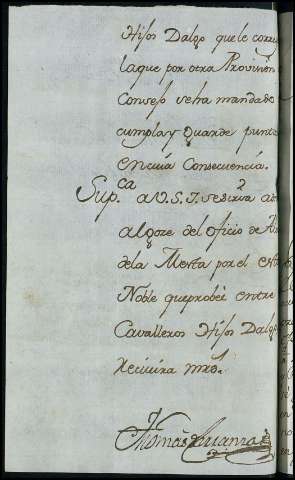 Hijos Dalgo que le corres
la que por otra Provision
Consejo se ha mandado
cumpla y guarde punt
en cuia Consecuencia.
Sup.ca a V.S.I. se sirva ad
al goze del oficio de
de la Mesta por el est
Noble que probée entre
Cavalleros Hijos Dalg
Recivira mrd.
Thomas